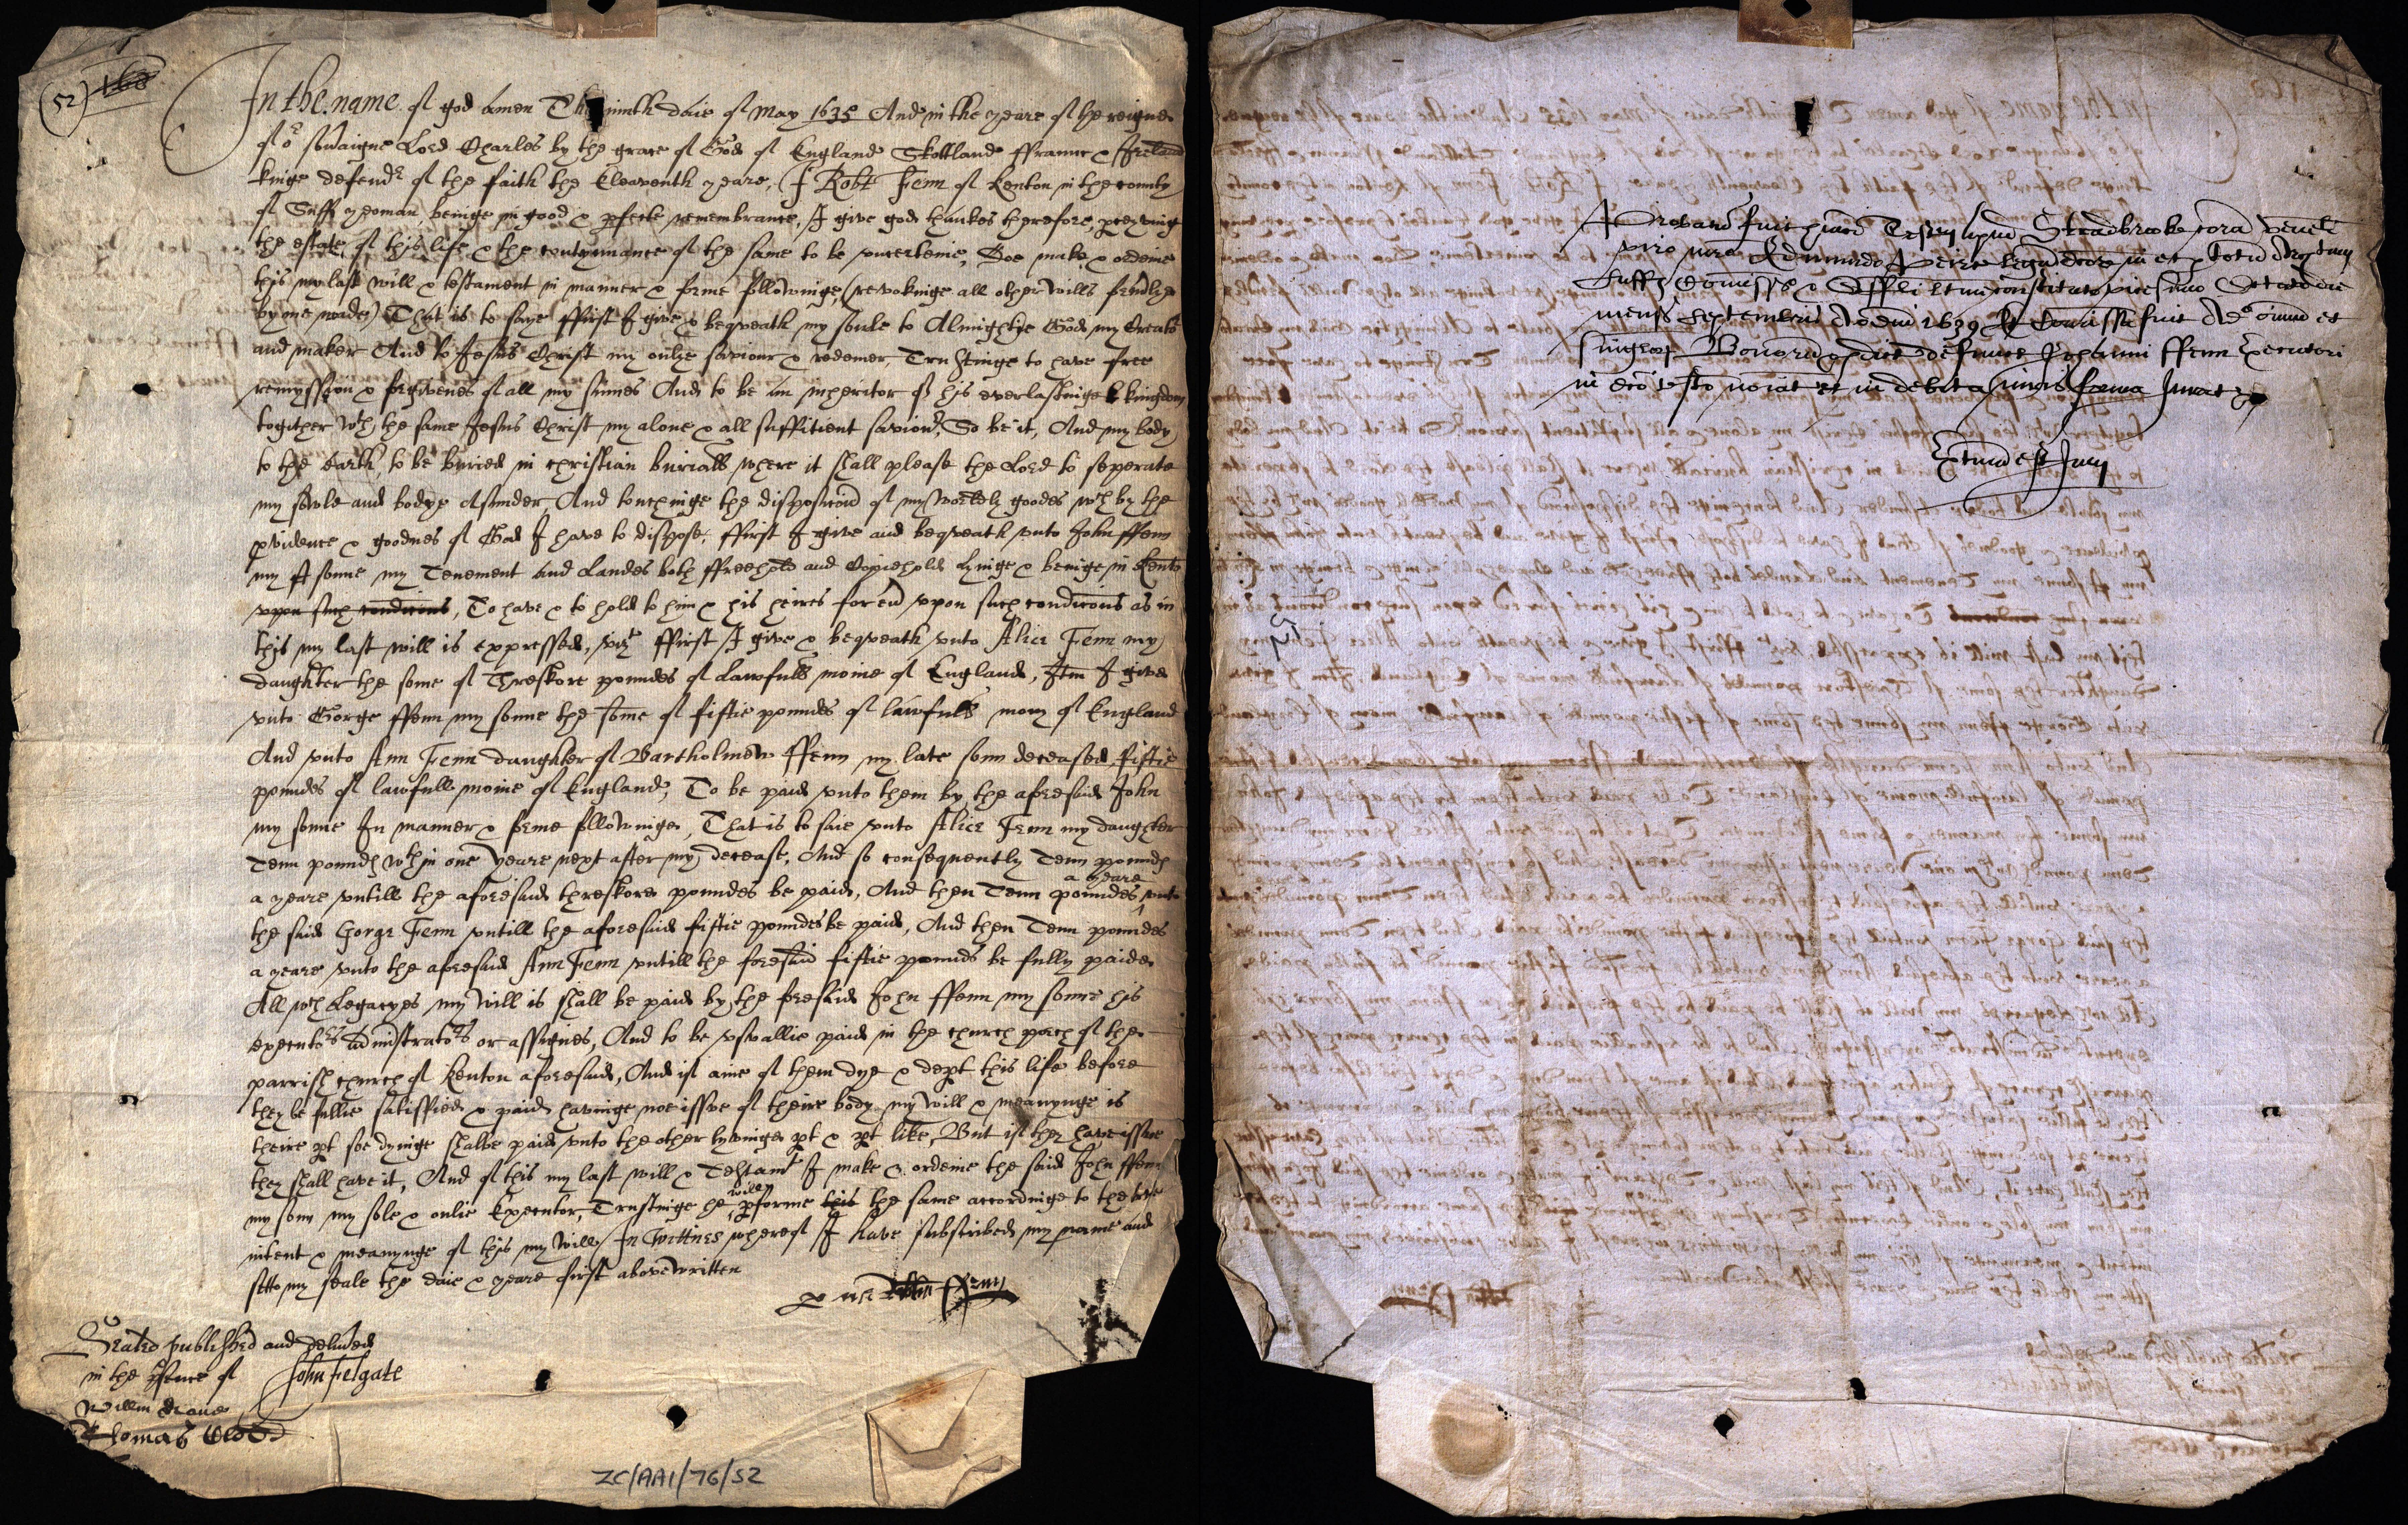 (52) 160
In the name of god Amen The ninth daie of May 1635 And in the yeare of the reigne
of or sovaigne Lord Charles by the grace of God of England Skottland ffrannc & Ireland
kinge defendr of the faith the Eleaventh yeare, I Robt Fenn of Kenton in the county
of Suff yeoman beinge in good & pfecte remembrance, I give god thankes therefore, pceyving
the estate of this life & the contynnance of the same to be uncerteine, Doe make & ordeine
this my last will & testament in manner & forme followinge, (revokinge all other wills
by me made) That is to saye ffirst I give & beqveath my soule to Almightye God my Creatr
and maker And to Jesus Christ my onlye saviour & redemer, Trustinge to have free
remyssion & forgivenes of all my sinnes And to be an inheritor of his everlastinge kingdom
togither wth the same Jesus Christ my alone & all suffitient saviour, So be it, And my body
to the earth to be buried in christian buriall where it shall please the Lord to seperate
my sowle and bodye asunder, And touchinge the disposicoin of my worldly goodes wch by the
pvidence & goodnes of God I have to dispose, ffirst I give and beqveath unto John ffenn
my sonne my Tenement and Landes both ffreehold and Copiehold lyinge & beinge in Kento
upon such condicons, To have & to hold to him & his heires for ev upon such condicons as in
this my last will is expressed, vizt ffirst I give & beqveath unto Alice Fenn my
daughter the some of Threskore poundes of Lawfull monie of England, Itm I give
unto Gorge ffenn my sonne the some of fiftie poundes of lawfull mony of England
And unto Ann Fenn daughter of Bartholmew ffenn my late sonn deceased fiftie
poundes of lawfull monie of England, To be paid unto them by the aforesaid John
my sonne In manner & forme followinge, That is to saie unto Alice Fenn my daughter
Tenn pounds wthin one yeare next after my decease, And so consequently Tenn pounds
a yeare untill the aforesaid threskore poundes be paid, And then Tenn poundes a yeare unto
the said Gorge Fenn untill the aforesaid fiftie poundes be paid, And then Tenn poundes
a yeare unto the aforesaid Ann Fenn untill the foresaid fiftie pounds be fully paide
All wch Legacyes my will is shall be paid by the foresaid John ffenn my sonne his
executors administrators or assignes, And to be usuallie paid in the church porch of the
parrish church of Kenton aforesaid, And if anie of them dye & dept this life before
they be fullie satisfied & paid havinge noe issue of theire body my will & meanynge is
theire pt soe dyinge shalbe paid unto the other lyvinge pt & pt like, But if they have issue
they shall have it, And of this my last will & Testamt I make & ordeine the said John ffenn
my sonn my sole & onlie Executor, Trustinge he will pforme this the same accordinge to the true
intent & meanynge of this my will, In wittnes whereof I have subscribed my name and
sette my seale the daie & yeare first above written
Sealed published and delivred
in the psence of John Felgate
Willm
Thomas
ZC/AA1/76/52
Probatu fuit Testm apud Stradbrooke corā
viro mro Edmundo
Suff
mensis Septembris Ao dm 1639 Et Comissa fuit Ado oium et
singlor Bonorū defuncti Johanni ffenn Executori
in testo noiat et in debita iuris forma Jurat